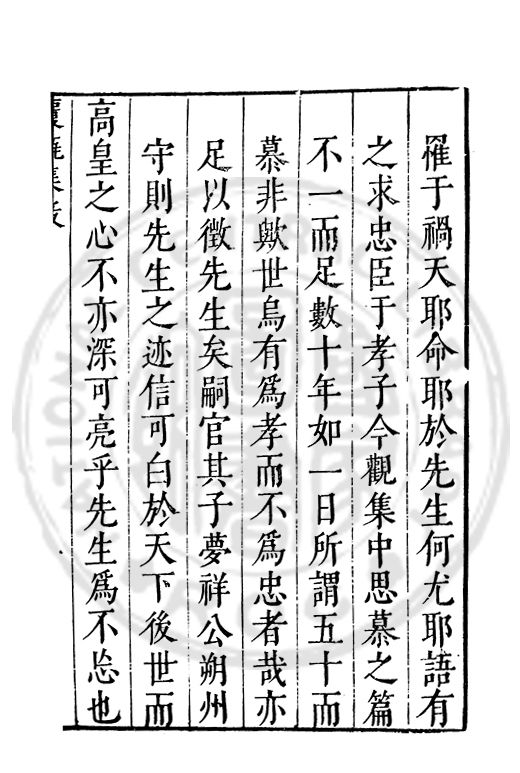 罹于禍天耶命耶於先生何尤耶語有
之求忠臣于孝子今觀集中思慕之篇
不一而足數十年如一日所謂五十而
慕非歟世烏有爲孝而不爲忠者哉亦
足以徵先生矣嗣官其子夢祥公朔州
守則先生之迹信可白於天下後世而
高皇之心不亦深可亮乎先生爲不忝也